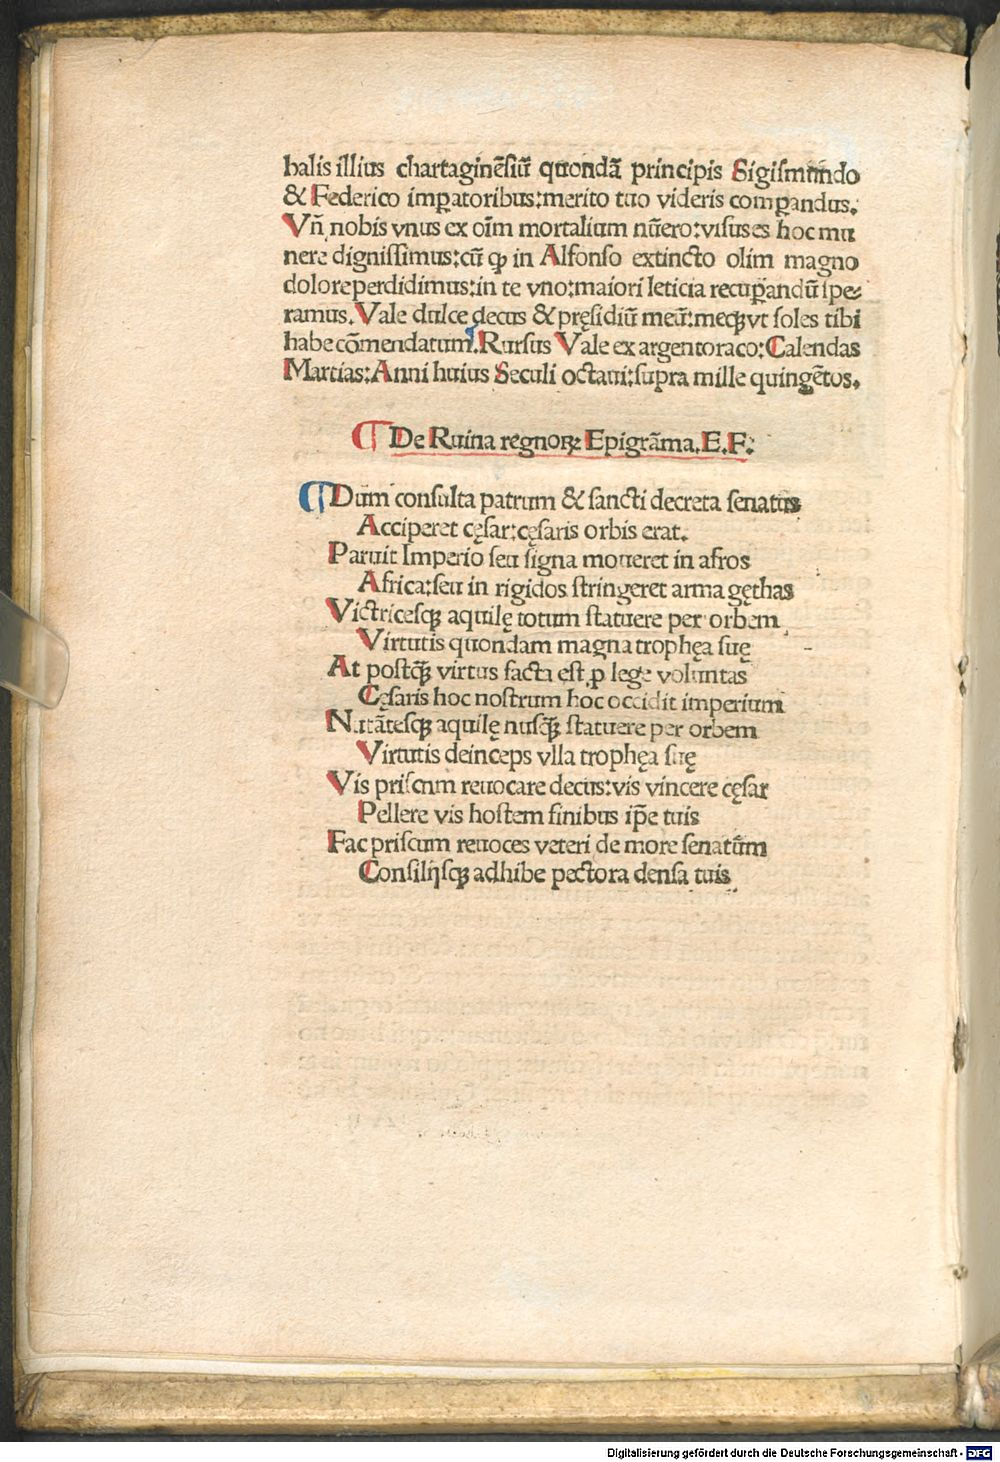 balis illius chartaginēsiū quondā principis Sigismundo
& Federico imꝑatoribus: merito tuo videris comꝑandus.
Vñ nobis vnus ex oīm mortalium nūero: visus es hoc mu
nere dignissimus: cū ꝙ in Alfonso extincto olim magno
dolore perdidimus: in te vno: maiori leticia recuꝑandū spe⸗
ramus. Vale dulce decus & pręsidiū meū: meqꝫ vt soles tibi
habe cōmendatum. Rursus Vale ex argentoraco: Calendas
Martias: Anni huius Seculi octaui: supra mille quingētos.
¶ De Ruina regnoꝝ Epigrāma. E. F:
¶ Dum consulta patrum & sancti decreta senatus
Acciperet cęsar: cęsaris orbis erat.
Paruit Imperio seu signa moueret in afros
Africa: seu in rigidos stringeret arma gęthas
Victricesqꝫ aquilę totum statuere per orbem
Virtutis quondam magna trophęa suę
At postqꝫ̄ virtus facta est ꝓ lege voluntas
Cęsaris hoc nostrum hoc occidit imperium
Nutātesqꝫ aquilę nusqꝫ̄ statuere per orbem
Virtutis deinceps vlla trophęa suę
Vis priscum reuocare decus: vis vincere cęsar
Pellere vis hostem finibus ip̄e tuis
Fac priscum reuoces veteri de more senatūm
Consilijsqꝫ adhibe pectora densa tuis
Digitalisierung gefördert durch die Deutsche Forschungsgemeinschaft - DFG